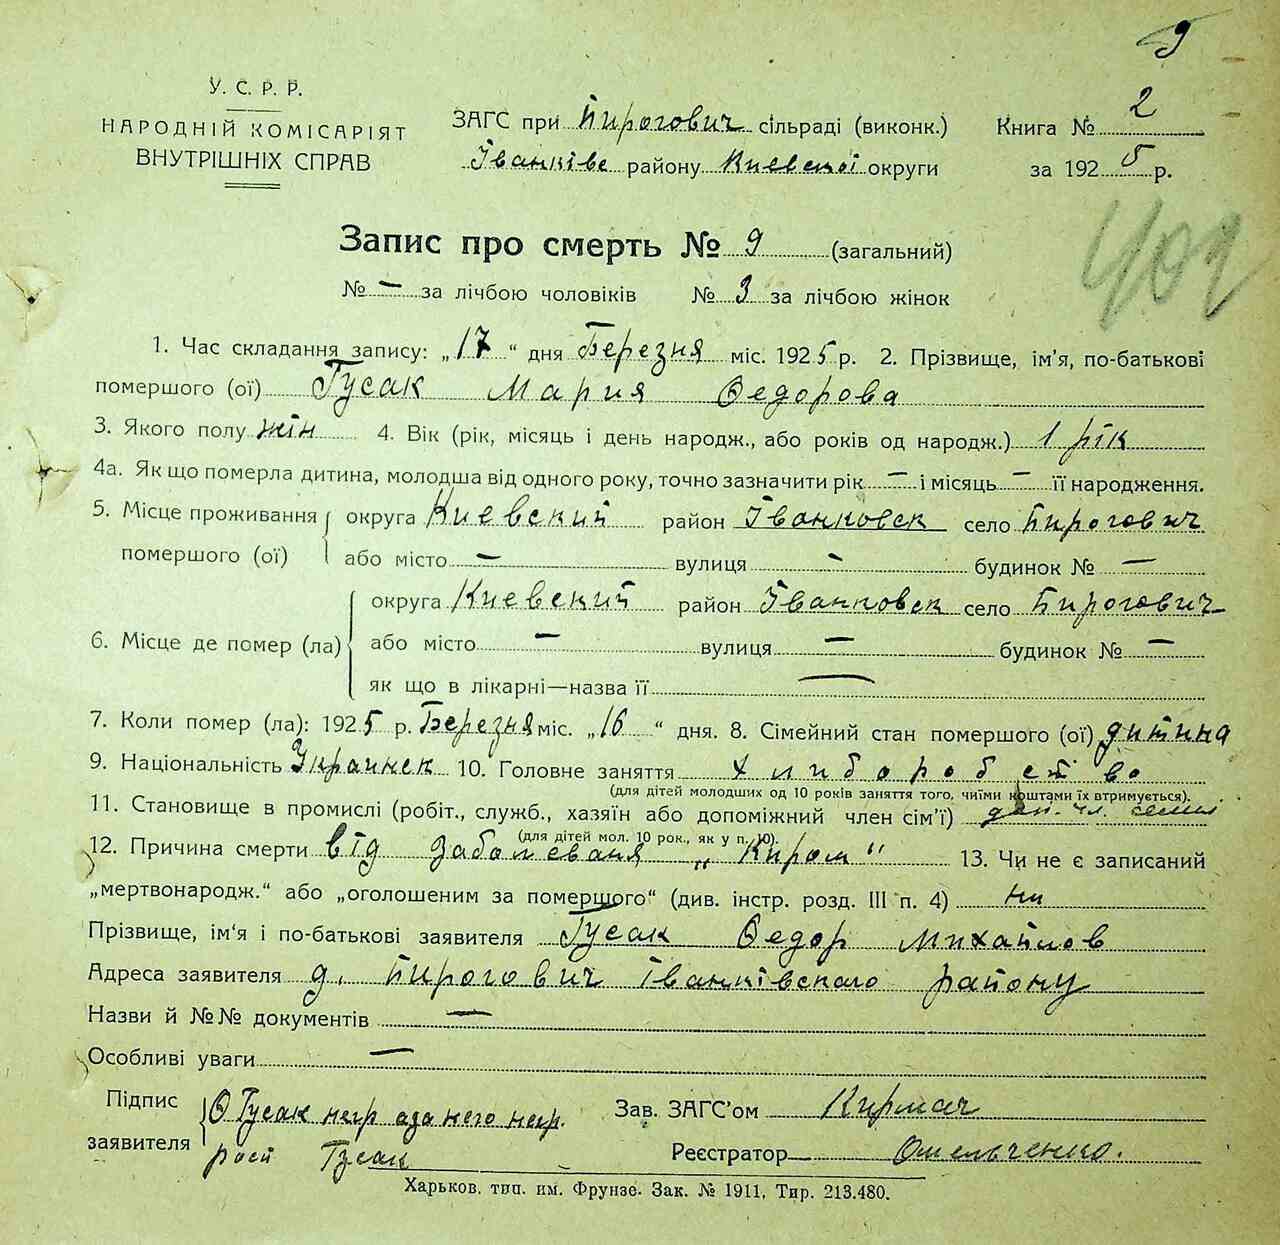 9
У. С. Р. Р.
НАРОДНІЙ КОМІСАРІЯТ
ВНУТРІШНІХ СПРАВ
ЗАГС при Пирогович сільраді (виконк.)
Іванківс району Киевскої округи
Книга № 2
за 1925 р.
402
Запис про смерть № 9 (загальний)
№ — за лічбою чоловіків № 3 за лічбою жінок
1. Час складання запису: „17“ дня Березня міс. 1925 р. 2. Прізвище, ім'я, по-батькові
помершого (ої) Гусак Мария Федорова
3. Якого полу жін 4. Вік (рік, місяць і день народж., або років од народж.) 1 рік
4а. Як що померла дитина, молодша від одного року, точно зазначити рік — і місяць — її народження.
5. Місце проживання округа Киевский район Іванковск село Пирогович
помершого (ої) або місто — вулиця - будинок № —
округа Киевский район Іванковск село Пирогович
6. Місце де помер (ла) або місто — вулиця — будинок № —
як що в лікарні—назва її —
7. Коли помер (ла): 1925 р. Березня міс. „16“ дня. 8. Сімейний стан помершого (ої) дитина
9. Національність Украинск 10. Головне заняття хлиборобство
(для дітей молодших од 10 років заняття того, чиїми коштами їх втримується).
11. Становище в промислі (робіт., служб., хазяїн або допоміжний член сім'ї) доп. чл. семи
(для дітей мол. 10 рок., як у п. 10).
12. Причина смерти від заболеваня „Киром“ 13. Чи не є записаний
„мертвонародж.“ або „оголошеним за помершого“ (див. інстр. розд. III п. 4) ни
Прізвище, ім'я і по-батькові заявителя Гусак Федор Михайлов
Адреса заявителя д. Пирогович Іванківскаго району
Назви й №№ документів —
Особливі уваги —
Підпис заявителя Ф Гусак негр аза него негр.
роси Гусак
Зав. ЗАГС'ом Кирмач
Реєстратор Омельченко.
Харьков, тип. им. Фрунзе. Зак. № 1911, Тир. 213.480.